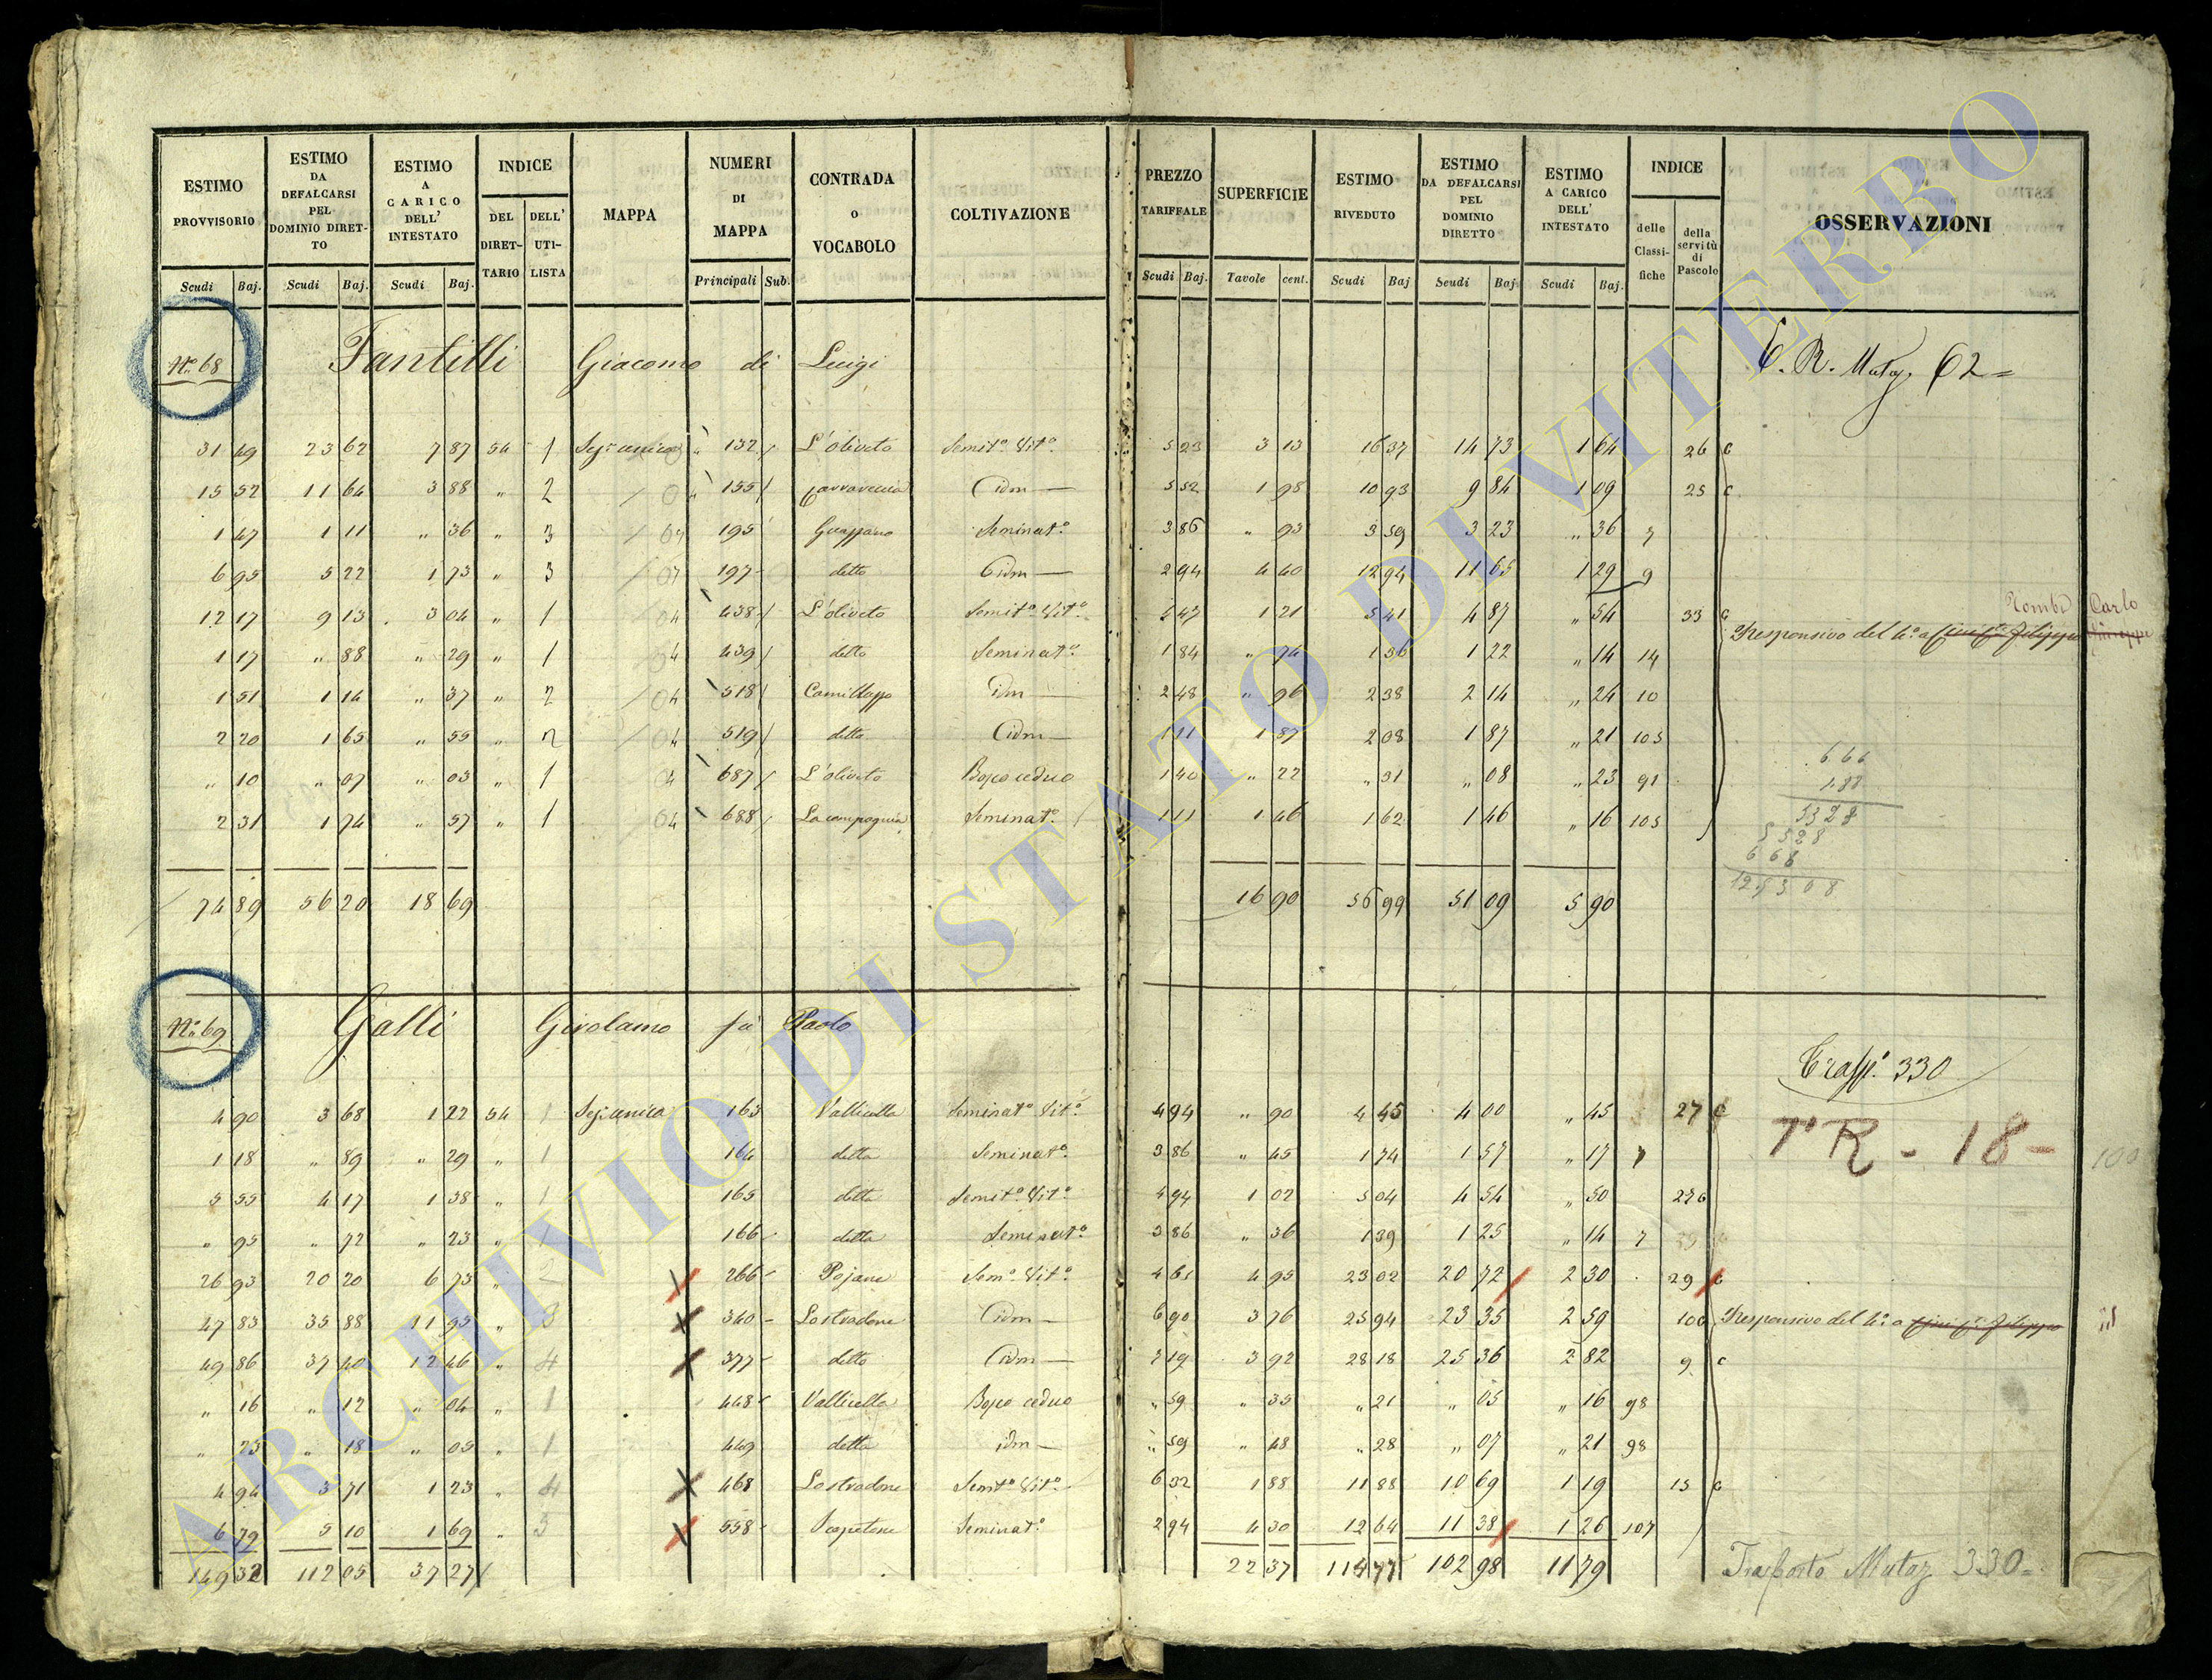 ESTIMO PROVVISORIO | ESTIMO DA DEFALCARSI PEL DOMINIO DIRETTO | ESTIMO A CARICO DELL' INTESTATO | INDICE | MAPPA | NUMERI DI MAPPA | CONTRADA o VOCABOLO | COLTIVAZIONE | PREZZO TARIFFALE | SUPERFICIE | ESTIMO RIVEDUTO | ESTIMO DA DEFALCARSI PEL DOMINIO DIRETTO | ESTIMO A CARICO DELL' INTESTATO | INDICE | OSSERVAZIONI
DEL DIRETTARIO | DELL' UTILISTA | delle Classifiche | della servitù di Pascolo
Scudi Baj. | Scudi Baj. | Scudi Baj. | Principali Sub. | Scudi Baj. | Tavole cent. | Scudi Baj | Scudi Baj | Scudi Baj.
N.° 68 Fantilli Giacomo di Luigi 62 =
31 49 | 23 62 | 7 87 | 54 | 1 | Sez: unica | 132 | L'oliveto | Semit.° Vit.° | 5 23 | 3 13 | 16 37 | 14 73 | 1 64 | 26 c
15 52 | 11 64 | 3 88 | " | 2 | 155 | Idm | 5 52 | 1 98 | 10 93 | 9 84 | 1 09 | 25 c
1 47 | 1 11 | " 36 | " | 3 | 195 | Seminat.° | 3 86 | " 93 | 3 59 | 3 23 | " 36 | 7
6 95 | 5 22 | 1 73 | " | 3 | 197 | detto | Idm | 2 94 | 4 40 | 12 94 | 11 65 | 1 29 | 9
12 17 | 9 13 | 3 04 | " | 1 | 438 | L'oliveto | Semit.° Vit.° | 4 47 | 1 21 | 5 41 | 4 87 | " 54 | 33 c
Carlo
Responsivo del 4.° a
1 17 | " 88 | " 29 | " | 1 | 439 | detto | Seminat.° | 1 84 | " 74 | 1 36 | 1 22 | " 14 | 14
1 51 | 1 14 | " 37 | " | 2 | 518 | idm | 2 48 | " 96 | 2 38 | 2 14 | " 24 | 10
2 20 | 1 65 | " 55 | " | 2 | 519 | detto | Idm | 1 11 | 1 87 | 2 08 | 1 87 | " 21 | 105
" 10 | " 07 | " 03 | " | 1 | 687 | L'oliveto | Bosco ceduo | 1 40 | " 22 | " 31 | " 08 | " 23 | 91
2 31 | 1 74 | " 57 | " | 1 | 688 | Seminat.° | 1 11 | 1 46 | 1 62 | 1 46 | " 16 | 105
74 89 | 56 20 | 18 69 | 16 90 | 56 99 | 51 09 | 5 90
N.° 69 Galli Girolamo fu Paolo
330
4 90 | 3 68 | 1 22 | 54 | 1 | Sez: unica | 163 | Vallicella | Seminat.° Vit.° | 4 94 | " 90 | 4 45 | 4 00 | " 45 | 27 c
1 18 | " 89 | " 29 | " | 1 | 164 | detta | Seminat.° | 3 86 | " 45 | 1 74 | 1 57 | " 17 | 7
T° R - 18 - 100
5 55 | 4 17 | 1 38 | " | 1 | 165 | detta | Semit.° Vit.° | 4 94 | 1 02 | 5 04 | 4 54 | " 50 | 27 c
" 95 | " 72 | " 23 | " | 1 | 166 | detta | Seminat.° | 3 86 | " 36 | 1 39 | 1 25 | " 14 | 7
26 93 | 20 20 | 6 73 | " | 2 | 266 | Pojane | Sem.° Vit.° | 4 65 | 4 95 | 23 02 | 20 72 | 2 30 | 29 c
47 83 | 35 88 | 11 95 | " | 3 | 340 | Lostradone | Idm | 6 90 | 3 76 | 25 94 | 23 35 | 2 59 | 10 c | Responsivo del 4.° a
49 86 | 37 40 | 12 46 | " | 4 | 377 | detto | Idm | 7 19 | 3 92 | 28 18 | 25 36 | 2 82 | 9 c
" 16 | " 12 | " 04 | " | 1 | 448 | Vallicella | Bosco ceduo | " 59 | " 35 | " 21 | " 05 | " 16 | 98
" 23 | " 18 | " 05 | " | 1 | 449 | detta | idm | " 59 | " 48 | " 28 | " 07 | " 21 | 98
4 94 | 3 71 | 1 23 | " | 4 | 468 | Lostradone | Semit.° Vit.° | 6 32 | 1 88 | 11 88 | 10 69 | 1 19 | 13 c
6 79 | 5 10 | 1 69 | " | 5 | 558 | Seminat.° | 2 94 | 4 30 | 12 64 | 11 38 | 1 26 | 107
149 32 | 112 05 | 37 27 | 22 37 | 114 77 | 102 98 | 11 79 | Trasporto Mutaz 330
ARCHIVIO DI STATO DI VITERBO